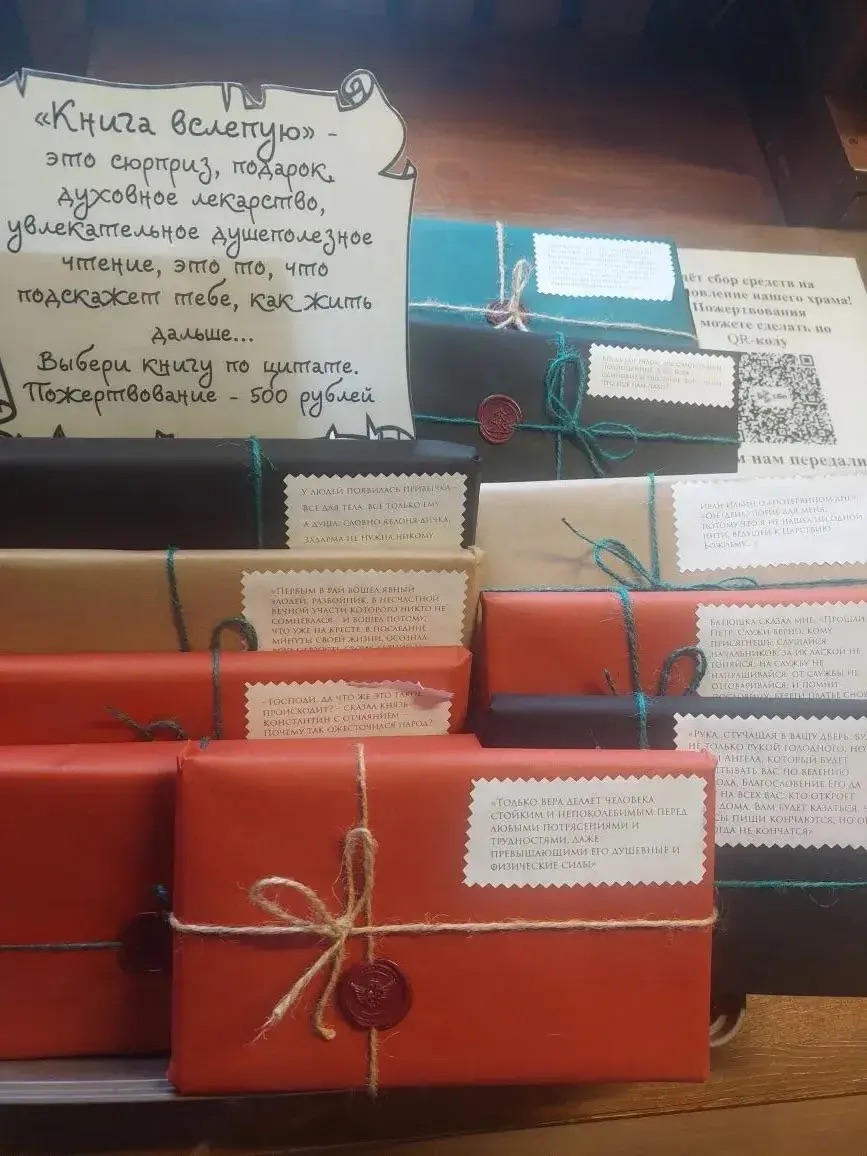 «Книга вслепую» -
это сюрприз, подарок,
духовное лекарство,
увлекательное душеполезное
чтение, это то, что
подскажет тебе, как жить
дальше...
Выбери книгу по цитате.
Пожертвование - 500 рублей
сбор средств на
нашего храма!
Пожертвования
можете сделать по
QR-коду
нам передали
У ЛЮДЕЙ ПОЯВИЛАСЬ ПРИВЫЧКА -
ВСЕ ДЛЯ ТЕЛА, ВСЕ ТОЛЬКО ЕМУ
А ДУША, СЛОВНО ЯБЛОНЯ ДИЧКА,
ЗАДАРМА НЕ НУЖНА НИКОМУ
ИВАН ИЛЬИН О
ПОТОМУ ЧТО Я НЕ НАШЕЛ НИ ОДНОЙ
НИТИ, ВЕДУЩЕЙ К ЦАРСТВИЮ
БОЖЬЕМУ
«ПЕРВЫМ В РАЙ ВОШЕЛ ЯВНЫЙ
ЗЛОДЕЙ, РАЗБОЙНИК, В НЕСЧАСТНОЙ
ВЕЧНОЙ УЧАСТИ КОТОРОГО НИКТО НЕ
СОМНЕВАЛСЯ. И ВОШЕЛ ПОТОМУ,
ЧТО УЖЕ НА КРЕСТЕ, В ПОСЛЕДНИЕ
МИНУТЫ СВОЕЙ ЖИЗНИ, ОСОЗНАЛ
БАТЮШКА СКАЗАЛ МНЕ: «ПРОЩАЙ,
ПЕТР. СЛУЖИ ВЕРНО, КОМУ
ПРИСЯГНЕШЬ; СЛУШАЙСЯ
НАЧАЛЬНИКОВ; ЗА ИХ ЛАСКОЙ НЕ
ГОНЯЙСЯ; НА СЛУЖБУ НЕ
НАПРАШИВАЙСЯ; ОТ СЛУЖБЫ НЕ
ОТГОВАРИВАЙСЯ; И ПОМНИ
ПОСЛОВИЦУ: БЕРЕГИ ПЛАТЬЕ СНОВУ
- ГОСПОДИ, ДА ЧТО ЖЕ ЭТО ТАКОЕ
ПРОИСХОДИТ? - СКАЗАЛ КНЯЗЬ
КОНСТАНТИН С ОТЧАЯНИЕМ
ПОЧЕМУ ТАК ОЖЕСТОЧИЛСЯ НАРОД?
«РУКА, СТУЧАЩАЯ В ВАШУ ДВЕРЬ,
НЕ ТОЛЬКО РУКОЙ ГОЛОДНОГО, НО
И АНГЕЛА, КОТОРЫЙ БУДЕТ
ВАС ПО ВЕЛЕНИЮ
БЛАГОСЛОВЕНИЕ ЕГО ДА
НА ВСЕХ ВАС, КТО ОТКРОЕТ
ДОМА. ВАМ БУДЕТ КАЗАТЬСЯ,
ПИЩИ КОНЧАЮТСЯ, НО
НЕ КОНЧАТСЯ»
«ТОЛЬКО ВЕРА ДЕЛАЕТ ЧЕЛОВЕКА
СТОЙКИМ И НЕПОКОЛЕБИМЫМ ПЕРЕД
ЛЮБЫМИ ПОТРЯСЕНИЯМИ И
ТРУДНОСТЯМИ, ДАЖЕ
ПРЕВЫШАЮЩИМИ ЕГО ДУШЕВНЫЕ И
ФИЗИЧЕСКИЕ СИЛЫ»